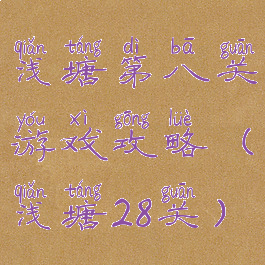 qiǎn táng dì bā guān
浅塘第八关
yóu xì gōng lüè
游戏攻略（
qiǎn táng guān
浅塘28关）